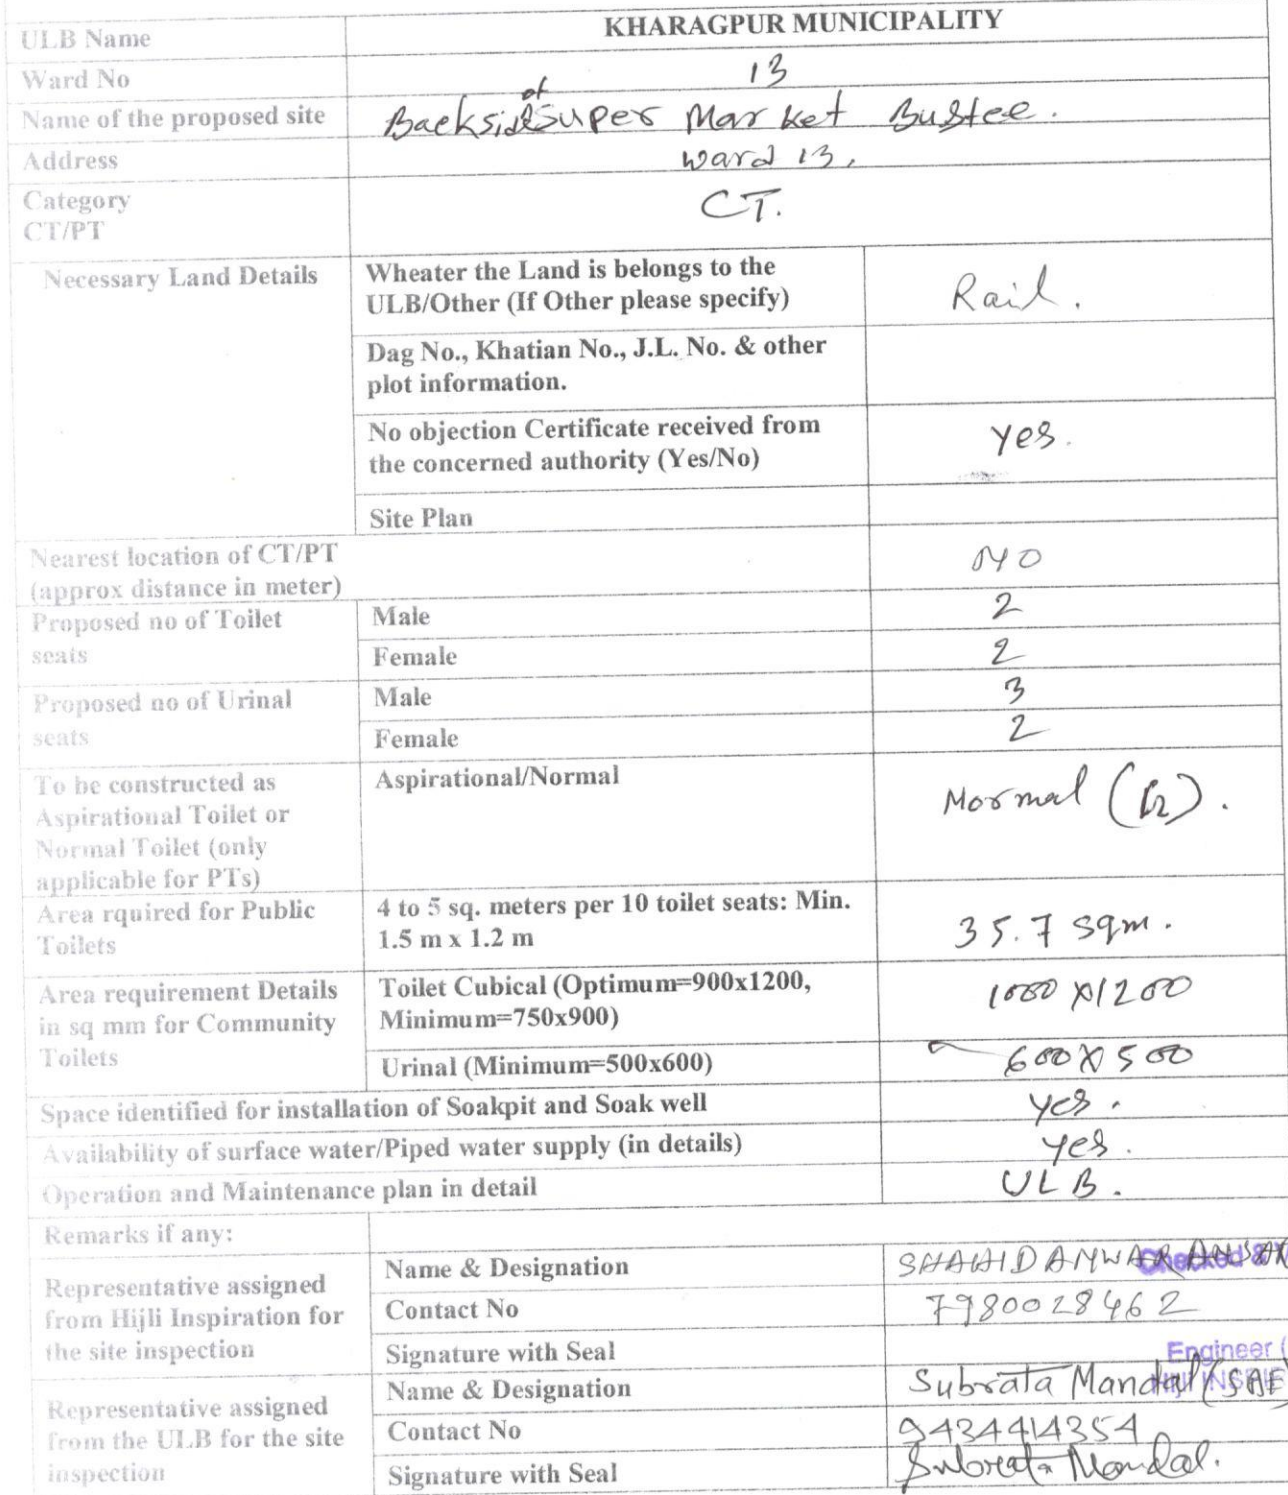 ULB Name KHARAGPUR MUNICIPALITY
Ward No 13
Name of the proposed site Backside of Super Market Bustee.
Address ward 13.
Category
CT/PT CT.
Necessary Land Details Wheater the Land is belongs to the
ULB/Other (If Other please specify) Rail.
Dag No., Khatian No., J.L. No. & other
plot information.
No objection Certificate received from
the concerned authority (Yes/No) Yes.
Site Plan
Nearest location of CT/PT
(approx distance in meter) NO
Proposed no of Toilet
seats Male 2
Female 2
Proposed no of Urinal
seats Male 3
Female 2
To be constructed as
Aspirational Toilet or
Normal Toilet (only
applicable for PTs) Aspirational/Normal Normal
Area rquired for Public
Toilets 4 to 5 sq. meters per 10 toilet seats: Min.
1.5 m x 1.2 m 35.7 sqm.
Area requirement Details
in sq mm for Community
Toilets Toilet Cubical (Optimum=900x1200,
Minimum=750x900) 1000X1200
Urinal (Minimum=500x600) 600X500
Space identified for installation of Soakpit and Soak well yes.
Availability of surface water/Piped water supply (in details) yes.
Operation and Maintenance plan in detail ULB.
Remarks if any:
Representative assigned
from Hijli Inspiration for
the site inspection Name & Designation SHAHID ANWAR
Checked &
Contact No 7980028462
Signature with Seal Engineer (
Representative assigned
from the ULB for the site
inspection Name & Designation Subrata Mandal (SAE)
Contact No 9434414354
Signature with Seal Subrata Mandal.